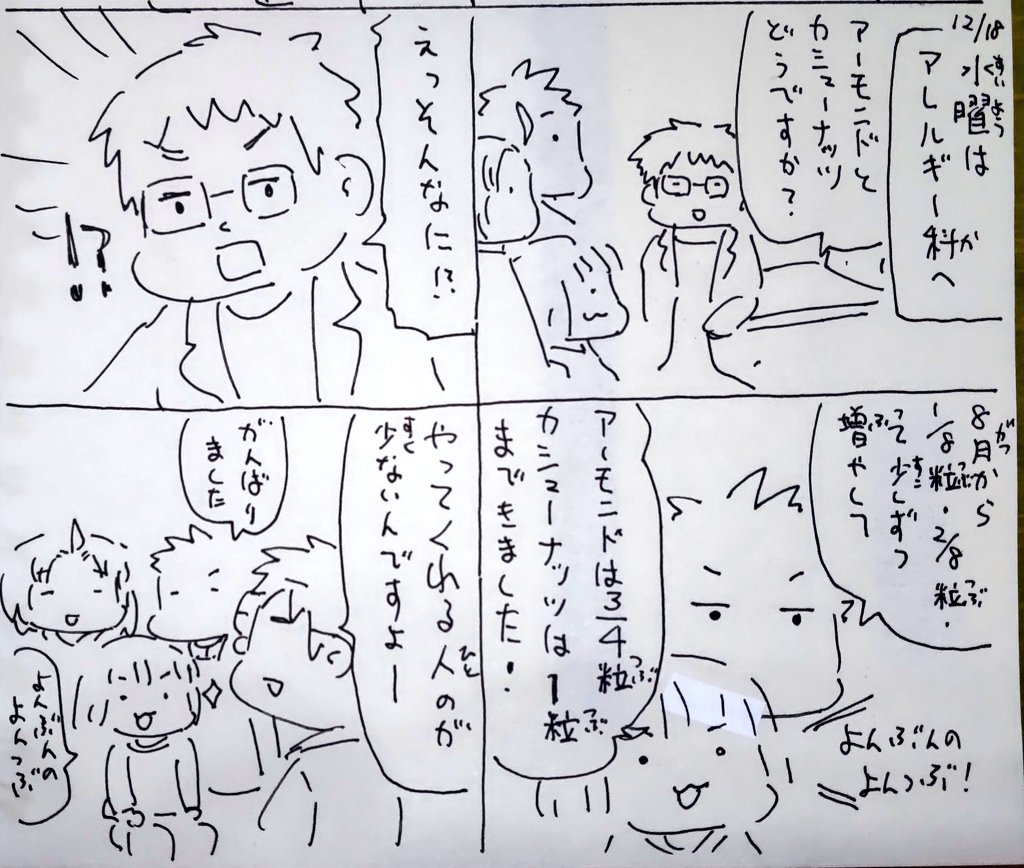 12/18
水曜は
すいよう
アレルギー科へ
か
アーモンドと
カシューナッツ
どうですか?
えっそんなに!?
!?
8月から
がつ
1/8粒・2/8粒・
つぶ
つぶ
って少しずつ
すこ
増やして
ふ
アーモンドは3/4粒
つぶ
カシューナッツは1粒
つぶ
までできました・
よんぶんの
よんつぶ!
やってくれる人のが
ひと
少ないんですよー
すく
がんばり
ました
よんぶんの
よんつぶ